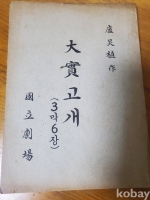 盧炅植 作
大實고개
(3막6장)
國立劇場
kobay